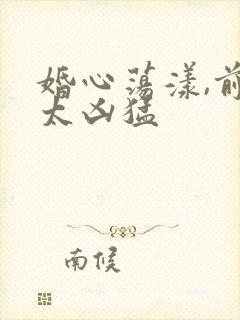 婚心荡漾,前
太凶猛
南候